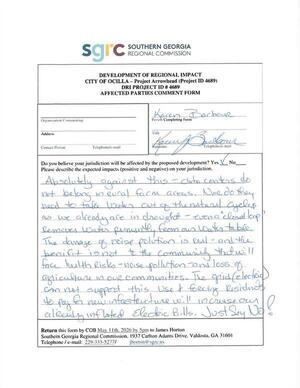 sgrc SOUTHERN GEORGIA
REGIONAL COMMISSION
DEVELOPMENT OF REGIONAL IMPACT
CITY OF OCILLA – Project Arrowhead (Project ID 4689)
DRI PROJECT ID # 4689
AFFECTED PARTIES COMMENT FORM
Karen Barbour
Organization Commenting
Person Completing Form
Address
Title
Karen Barbour
Contact Person Telephone/e-mail
Telephone/e-mail
Do you believe your jurisdiction will be affected by the proposed development? Yes ✓ No
Please describe the expected impacts (positive and/or negative) on your jurisdiction:
Absolutely against this - data centers do
not belong in rural farm areas. Nor do they
need to take water out of the natural cycle
as we already are in drought - even a "closed loop"
removes water from our water table.
The damage of noise pollution is real - and the
benefit is not to the community that will
face health risks - noise pollution - and loss of
agriculture in our communities. The grid (electric)
can not support this use & forcing residents
to pay for new infrastructure will increase our
already inflated Electric Bills. Just Say No!
Return this form by COB May 11th, 2026 by 5pm to James Horton
Southern Georgia Regional Commission, 1937 Carlton Adams Drive, Valdosta, GA 31601
Telephone / e-mail: 229-333-5277 jhorton@sgrc.us